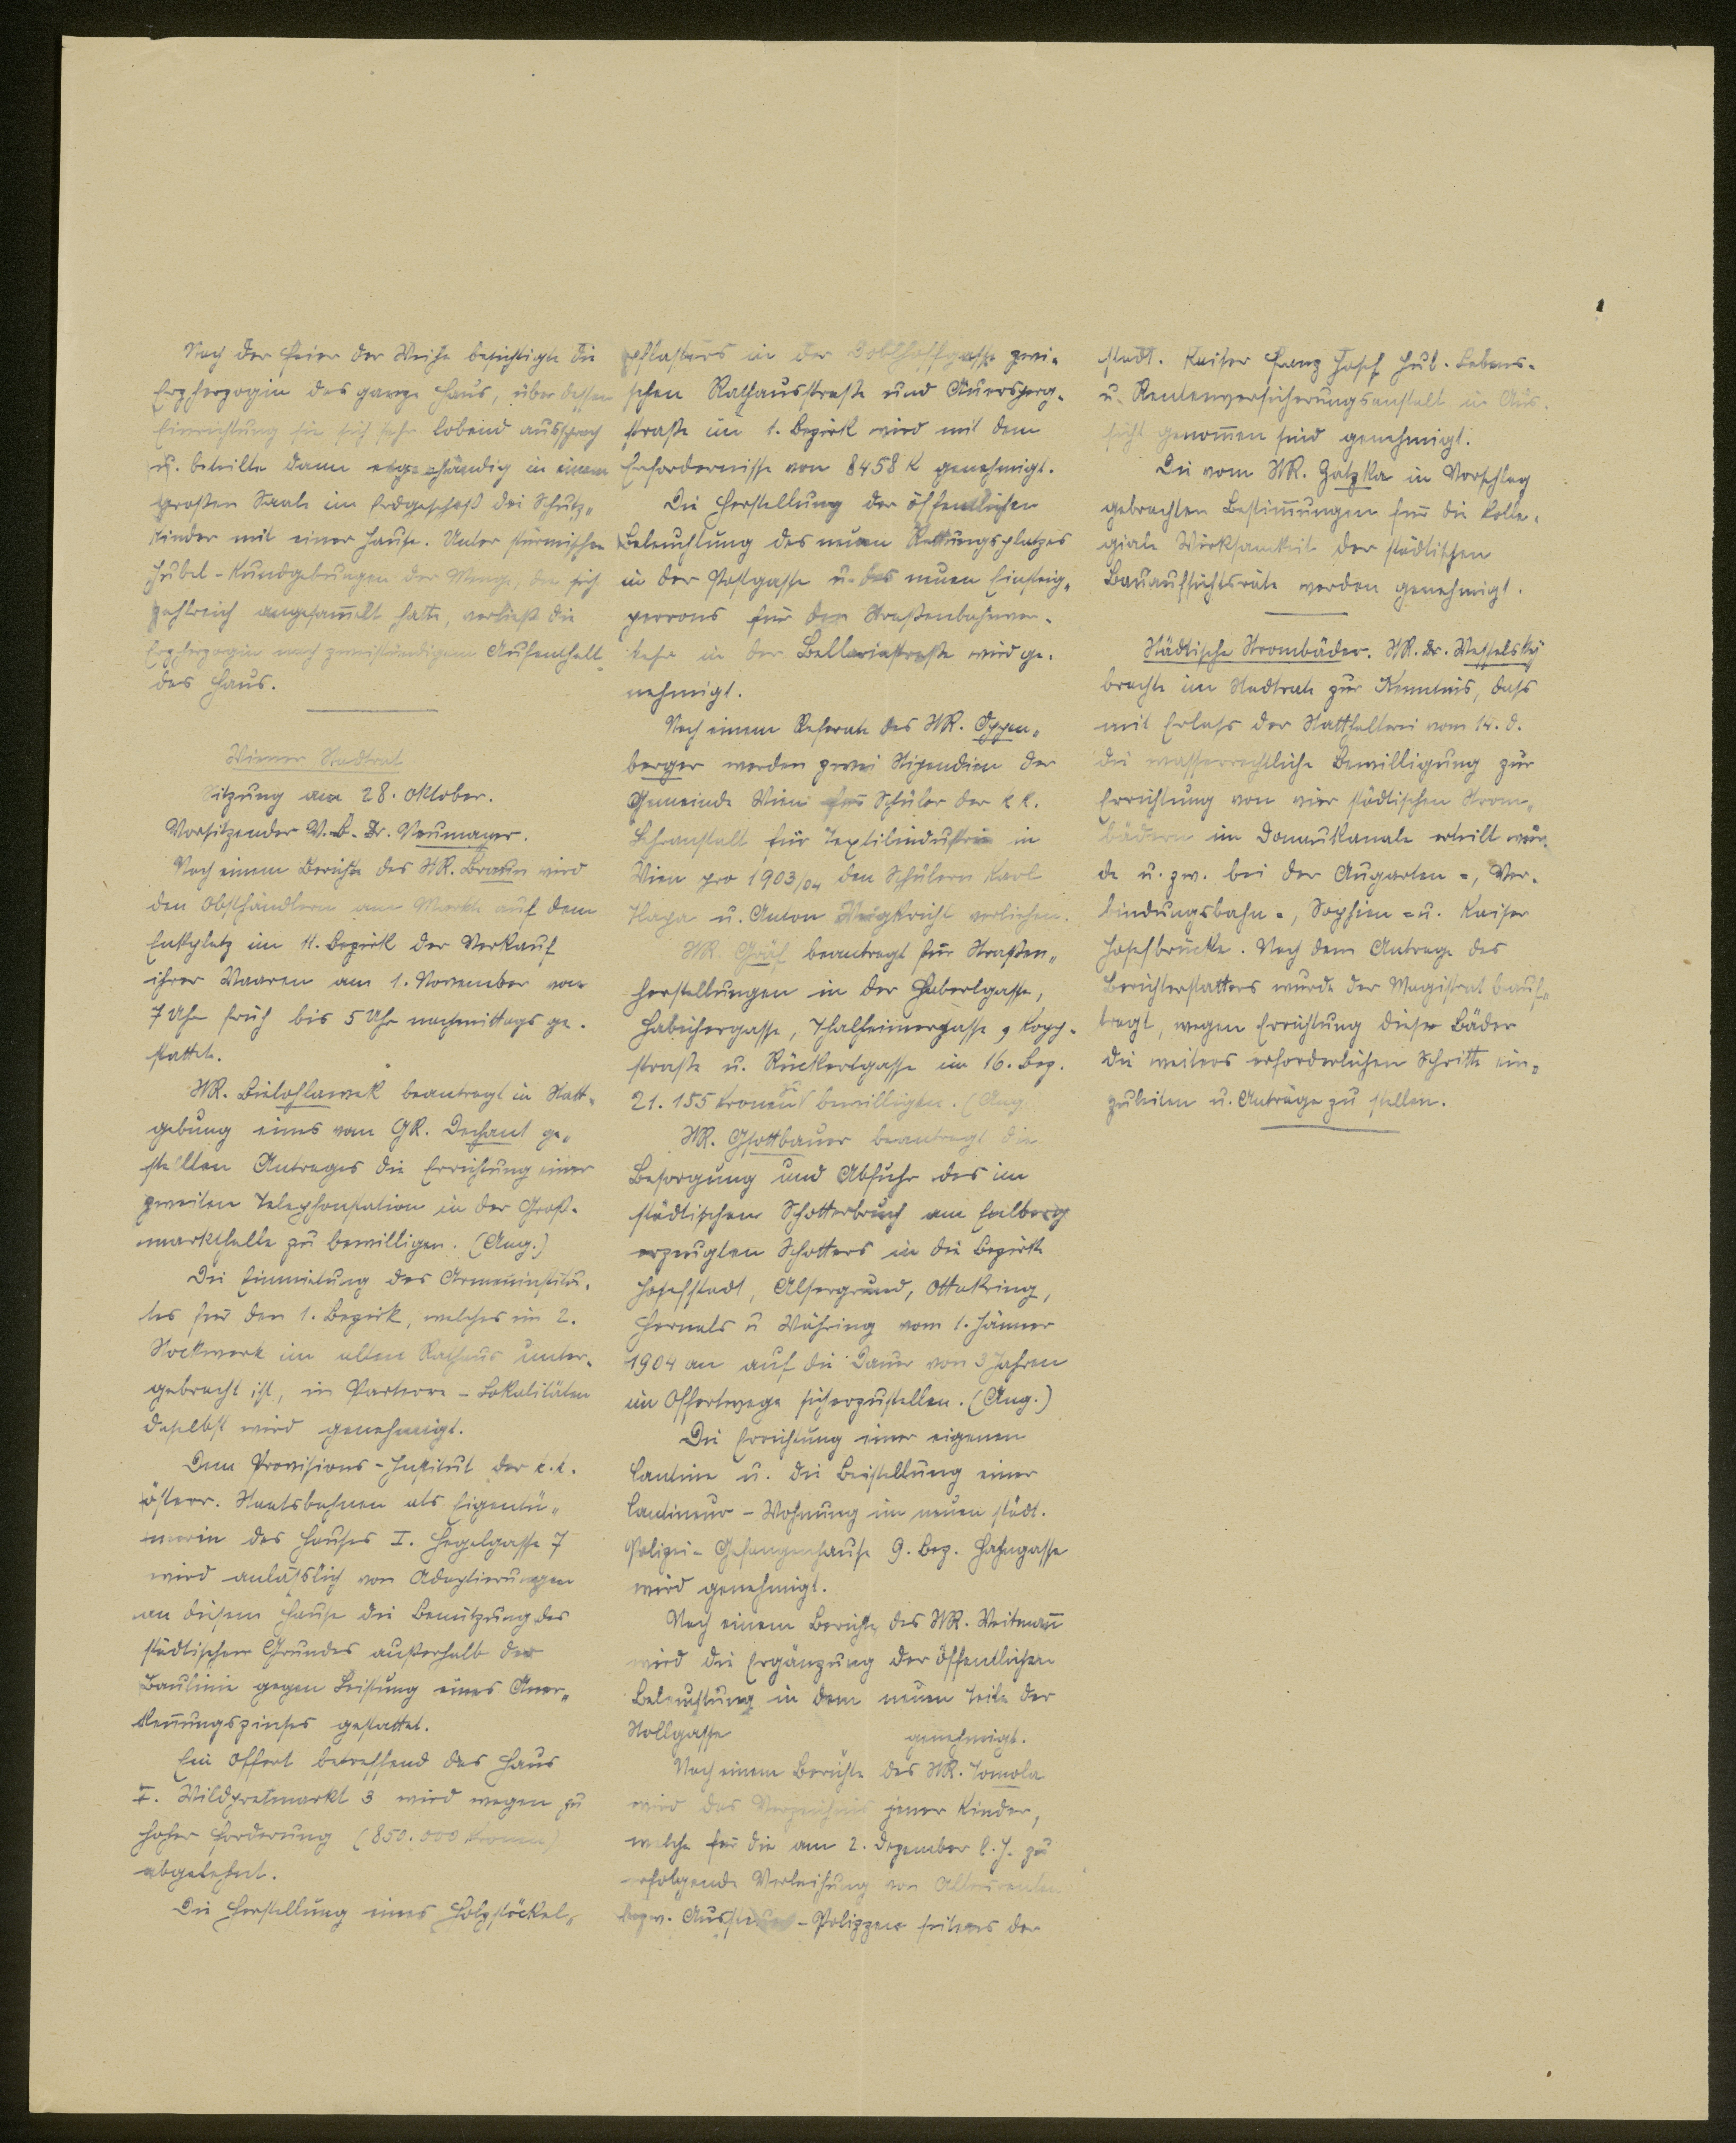 Nach der Feier der Weihe besichtigte die
Erzherzogin das ganze Haus, über dessen
Einrichtung sie sich sehr lobend aussprach
u. beteilte dann eigenhändig in einem
großen Saale im Erdgeschoß die Schutz-
kinder mit einer Jause. Unter stürmischen
Jubel-Kundgebungen der Menge, die sich
zahlreich angesam̄elt hatte, verließ die
Erzherzogin nach zweistündigem Aufenthalt
das Haus.
Wiener Stadtrat
Sitzung am 28. Oktober.
Vorsitzender V.B. Dr. Neumayer.
Nach einem Berichte des StR. Braun wird
den Obsthändlern am Markte auf dem
Enkplatz im 11. Bezirk der Verkauf
ihrer Waaren am 1. November von
7 Uhr früh bis 5 Uhr nachmittags ge-
stattet.
StR. Bielohlawek beantragt in Statt-
gebung eines vom GR. Dechant ge-
stellten Antrages die Errichtung einer
zweiten Telephonstation in der Groß-
markthalle zu bewilligen. (Ang.)
Die Einmietung des Armeninstitu-
tes für den 1. Bezirk, welches im 2.
Stockwerk im alten Rathaus unter-
gebracht ist, in Parterre-Lokalitäten
daselbst wird genehmigt.
Dem Provisions-Institut der k.k.
österr. Staatsbahnen als Eigentü-
merin des Hauses I. Hegelgasse 7
wird anläßlich von Adaptierungen
an diesem Hause die Benützung des
städtischen Grundes außerhalb der
Baulinie gegen Leistung eines Aner-
ken̄ungszinses gestattet.
Ein Offert betreffend das Haus
I. Wildpretmarkt 3 wird wegen zu
hoher Forderung (850.000 Kronen)
abgelehnt.
Die Herstellung eines Holzstöckel-
pflasters in der Doblhoffgasse zwi-
schen Rathausstraße und Auersperg-
straße im 1. Bezirk wird mit dem
Erfordernisse von 8458 K genehmigt.
Die Herstellung der öffentlichen
Beleuchtung des neuen Rettungsplatzes
in der Postgasse u. des neuen Einsteig-
perrons für den Straßenbahnver-
kehr in der Bellariastraße wird ge-
nehmigt.
Nach einem Referate des StR. Oppen-
berger werden zwei Stipendien der
Gemeinde Wien für Schüler der k k.
Lehranstalt für Textilindustrie in
Wien pro 1903/04 den Schülern Karl
u. Anton verliehen.
StR. Gräf beantragt für Straßen-
herstellungen in der Haberlgasse,
Habichergasse, Thalheimergasse, Kopp-
straße u. Rückertgasse im 16. Bez.
21.155 Kronen zu bewilligen. (Ang.
StR. Gsottbauer beantragt die
Besorgung und Abfuhr des im
städtischen Schotterbruch am Exlberg
erzeugten Schotters in die Bezirke
Josefstadt, Alsergrund, Ottakring,
Hernals u Währing vom 1. Jänner
1904 an auf die Dauer von 3 Jahren
im Offertwege sicherzustellen. (Ang.)
Die Errichtung einer eigenen
Cantine u. die Beistellung einer
Cantineur-Wohnung im neuen städt.
Polizei-Gefangenhause 9. Bez. Hahngasse
wird genehmigt.
Nach einem Berichte des StR. Weitman̄
wird die Ergänzung der öffentlichen
Beleuchtung in dem neuen Teile der
Stollgasse genehmigt.
Nach einem Berichte des StR. Tomola
wird das Verzeichnis jener Kinder,
welche für die am 2. Dezember l. J. zu
erfolgende Verleihung von Altersrenten
bezw. Aussteuer-Polizzen seitens der
städt. Kaiser Franz Josef Jub. Lebens-
u. Rentenversicherungsanstalt in Aus-
sicht genom̄en sind genehmigt.
Die vom StR. Zatzka in Vorschlag
gebrachten Bestim̄ungen für die kolle-
giale Wirksamkeit der städtischen
Bauaufsichtsräte werden genehmigt.
Städtische Strombäder. StR. Dr. Wesselsky
brachte im Stadtrate zur Kenntnis, dass
mit Erlass der Statthalterei vom 14. d.
die wasserrechtliche Bewilligung zur
Errichtung von vier städtischen Strom-
bädern im Donaukanale erteilt wur-
de u. zw. bei der Augarten-, Ver-
bindungsbahn-, Sophien- u. Kaiser
Josefbrücke. Nach dem Antrage des
Berichterstatters wurde der Magistrat beauf-
tragt, wegen Errichtung dieser Bäder
die weiters erforderlichen Schritte ein-
zuleiten u. Anträge zu stellen.